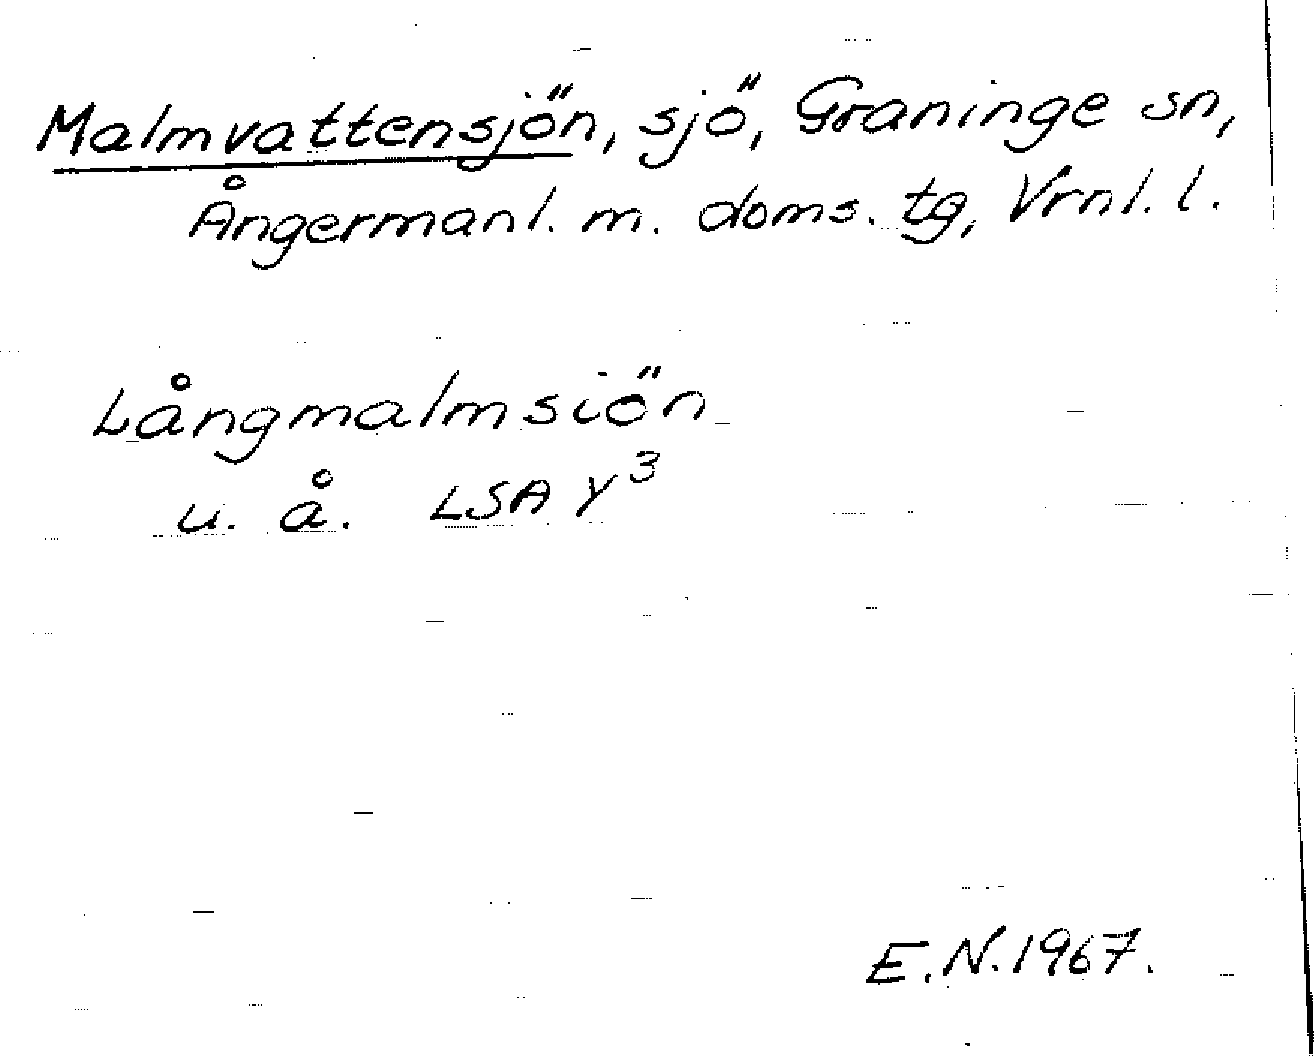 Malmvattensjön, sjö, Graninge sn,
Ångermanl. m. doms. tg, Vrnl. l.
Långmalmsiön
u. å. LSA Y³
E.N. 1967.